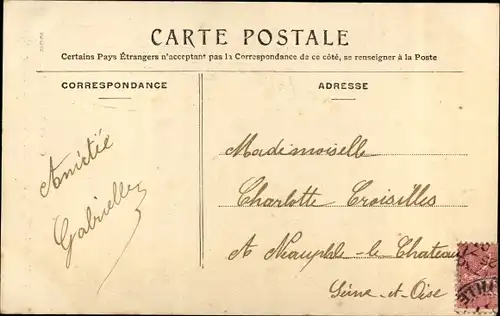 CARTE POSTALE
Certains Pays Étrangers n'acceptant pas la Correspondance de ce côté, se renseigner à la Poste
CORRESPONDANCE
ADRESSE
Amitié
Gabrielle
Mademoiselle
Charlotte Croisilles
A Neauphle-le-Chateau
Seine-et-Oise